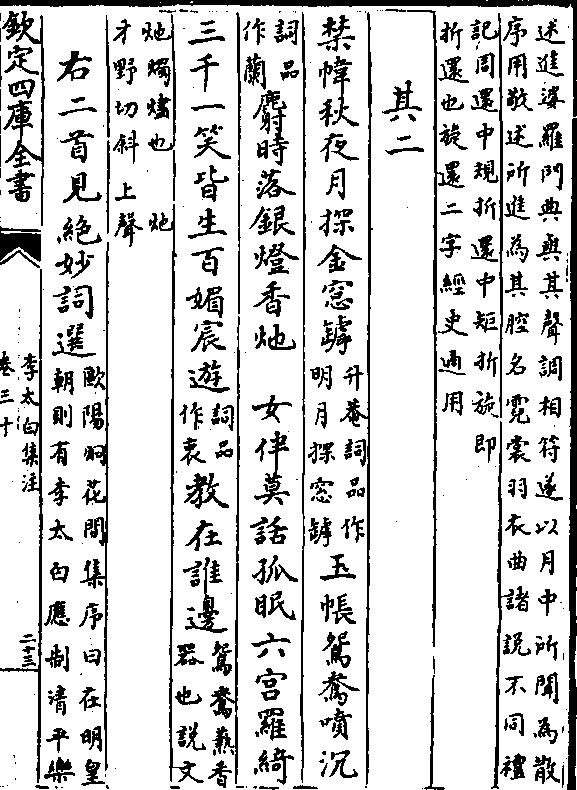 述進婆羅門典與其聲調相符遂以月中所聞為散
序用敬述所進為其腔名霓裳羽衣曲諸說不同禮
記周還中規折還中矩折旋即
折還也旋還二字經史通用
其二
禁幃秋夜月探金窓罅升菴詞品作明月探窓罅玉帳鴛鴦噴沉
詞品作蘭麝時落銀燈香灺　女伴莫話孤眠六宮羅綺
三千一笑皆生百媚宸遊詞品作衷教在誰邊鴛鴦熏香器也說文
灺燭燼也　灺
才野切斜上聲
右二首見絶妙詞選歐陽炯花間集序曰在明皇朝則有李太白應制清平樂
欽定四庫全書
李太白集注
卷三十
二十三